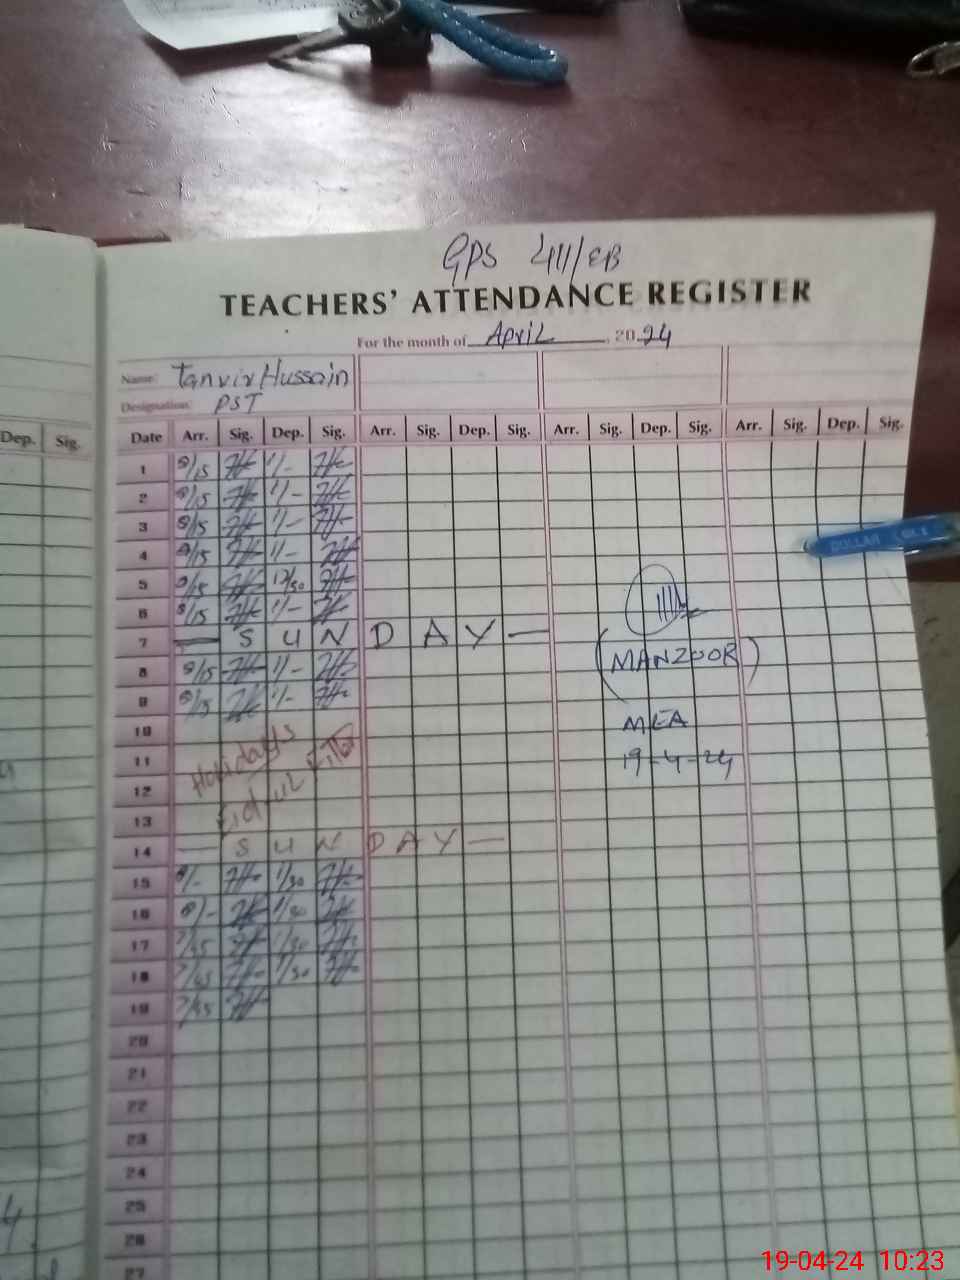 GPS 411/EB
TEACHERS' ATTENDANCE REGISTER
For the month of April, 2024
Name: Tanvir Hussain
Designation: PST
Dep. Sig.
Date Arr. Sig. Dep. Sig. Arr. Sig. Dep. Sig. Arr. Sig. Dep. Sig. Arr. Sig. Dep. Sig.
1 8/15 1/-
2 8/15 1/-
3 8/15 1/-
4 8/15 1/-
DOLLAR
5 8/15 12/30
6 8/15 1/-
7 — SUNDAY —
(MANZOOR)
8 8/15 1/-
9 8/15 1/-
MEA
10
Holidays
11
19-4-24
12
Eid-ul-Fitar
13
14 — SUNDAY —
15 8/- 1/30
16 8/- 1/30
17 7/55 1/30
18 7/55 1/30
19 7/55
20
21
22
23
24
25
26
27
19-04-24 10:23